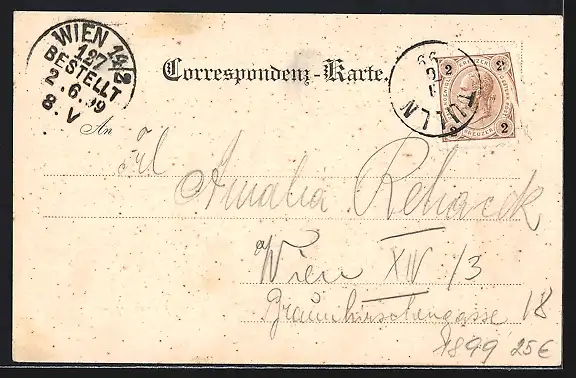 WIEN 14/3
127
BESTELLT
2.6.99
8.V
Correspondenz-Karte.
TULLN
99
2 KREUZER 2
An
Frl
Amalia Rehacek
Wien XIV/3
Braunhirschengasse 18
1899 25€